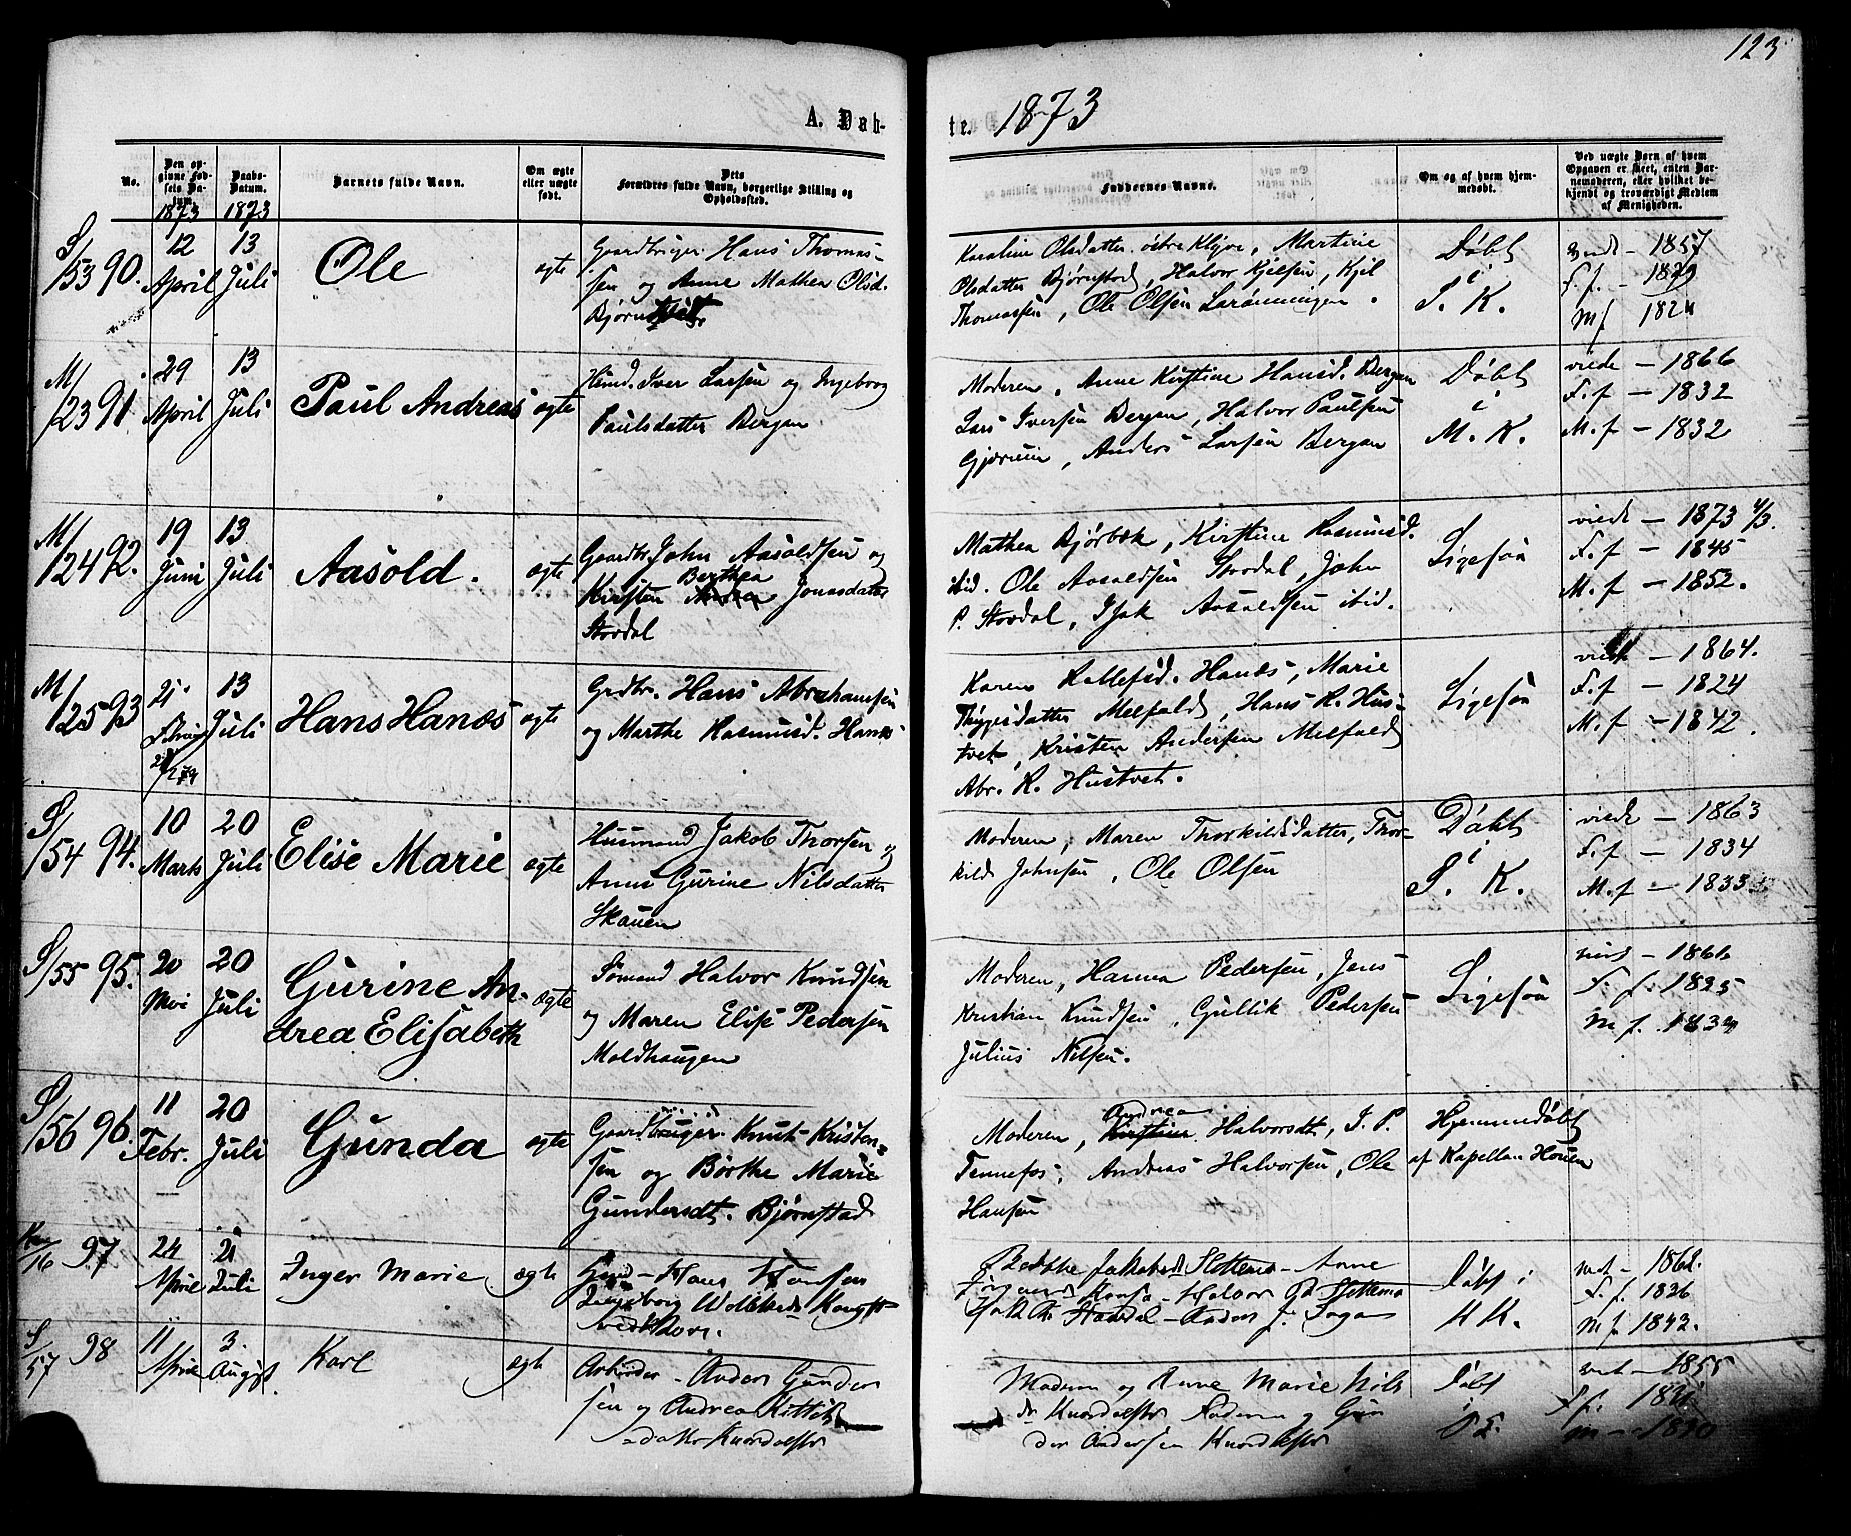 123
A. Døb-
te. 1873
No.
Den op-
givne Fød-
sels Da-
tum.
Daabs-
Datum.
Barnets fulde Navn.
Om ægte
eller uægte
født.
Dets
Forældres fulde Navn, borgerlige Stilling og
Opholdssted.
Faddernes Navne.
Om og af hvem hjem-
medøbt.
Ved uægte Børn af hvem
Opgaven er skeet, enten Bar-
nemoderen, eller hvilket be-
kjendt og troværdigt Medlem
af Menigheden.
1873 1873
S/53 90.
12
April
13
Juli
Ole
ægte
Gaardbruger Hans Thomas-
sen og Anne Mathea Olsd.
Karoline Olsdatter østre Klyve, Martine
Olsdatter Bjørnstad, Halvor Kjelsen, Kjel
Thomassen, Ole Olsen Larønningen.
Døbt
i
S. K.
1857
F. f. 1829
M f 1824
M/23 91.
29
April
13
Juli
Paul Andreas
ægte
Husmd. Iver Larsen og Ingeborg
Paulsdatter Bergan
Moderen, Anne Kirstine Hansd. Bergan
Lars Iversen Bergan, Halvor Paulsen
Gjerum, Anders Larsen Bergan
Døbt
i
M. K.
viede - 1866
F. f - 1832
M. f - 1832
M/24 92.
19
Juni
13
Juli
Aasold.
ægte
Gaardbr. John Aasoldsen og
Berthea
Kirsten Jonasdatter
Stordal
Mathea Bjørbæk, Kirstine Rasmusd.
ibid. Ole Aasoldsen Stordal, John
P. Stordal, Isak Aasoldsen ibid.
Ligesaa
viede - 1873 4/3.
F. f - 1845
M. f - 1852.
M/25 93
21
13
Juli
Hans Hanæs
ægte
Grdbr. Hans Abrahamsen
og Marthe Rasmusd. Hanæs
Karen Rollefsd. Hanæs, Marie
Thygesdatter Melfald, Hans R. Hus-
tvet, Kristen Andersen Melfald
Abr. R. Hustvet.
Ligesaa
viede - 1864.
F. f - 1824
M. f - 1842.
S/54 94.
10
Marts
20
Juli
Elise Marie
ægte
Husmand Jakob Thorsen og
Anne Gurine Nilsdatter
Skauen
Moderen, Maren Thorkildsdatter, Thor-
kild Johnsen, Ole Olsen
Døbt
i
S. K.
viede - 1863
F. f - 1834
M. f - 1833
S/55 95.
20
Mai
20
Juli
Gurine An-
drea Elisabeth
ægte
Sømand Halvor Knudsen
og Maren Elise Pedersen
Moldhaugen
Moderen, Hanna Pedersen, Jens
Kristian Knudsen, Gullik Pedersen
Julius Nilsen.
Ligesaa
1861
F. f. 1835
M f. 1834
S/56 96.
11
Febr.
20
Juli
Gunda
ægte
Gaardbruger Knut Kristen-
sen og Børthe Marie
Gundersdt. Bjørnstad
Andrea
Moderen, Kirstine Halvorsdt, I. P.
Tennefos, Andreas Halvorsen, Ole
Hansen
Hjemmedøbt
af Kapellan Houen
16 97
24
April
21
Juli
Inger Marie
ægte
Hans Hansen
Ingeborg
Anne
Døbt i
K K.
1868.
F. f. 1836
M f. 1842.
S/57 98
11
April
3.
August
Karl
ægte
Arbeider - Anders Gunder-
sen og Andrea Kittils-
datter
Moderen og Anne Marie Nils
Andersen
Døbt
i
1855
F f.